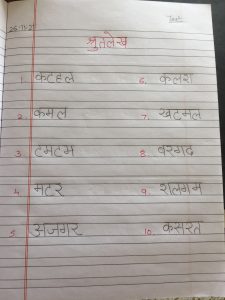 श्रुतलेख
1. कटहल
2. कमल
3. टमटम
4. मटर
5. अजगर
6. कलश
7. खटमल
8. बरगद
9. शलगम
10. कसरत